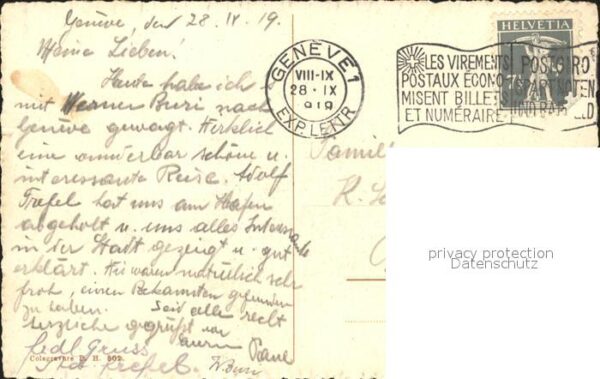 Genève, den 28. IX. 19.
Meine Lieben!
Heute habe ich
mit Werner Buri nach
Genève gewagt. Herrlich
eine wunderbar schöne u.
interessante Reise. Adolf
Trefel hat uns am Hafen
abgeholt u. uns alles
in der Stadt gezeigt u. gut
erklärt. Wir waren natürlich sehr
froh, einen Bekannten gefunden
zu haben. Seid alle recht
herzliche gegrüsst von
eurem Paul
Gruss
W. Buri
Colegravure D. H. 502.
GENÈVE 1
VIII-IX
28. IX
1919
EXP. LETTR
LES VIREMENTS
POSTAUX ÉCONO-
MISENT BILLETS
ET NUMÉRAIRE
POSTGIRO
HELVETIA
Famil
privacy protection
Datenschutz